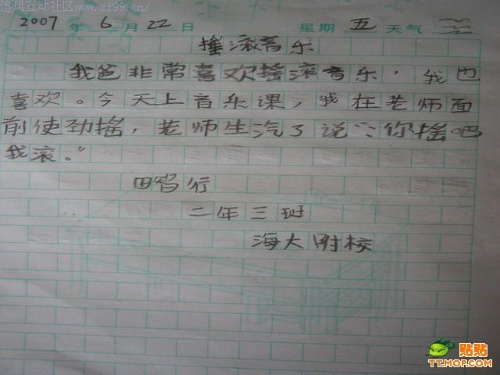 2007年6月22日 星期五 天气
摇滚音乐
我爸非常喜欢摇滚音乐，我也
喜欢。今天上音乐课，我在老师面
前使劲摇，老师生汽了说：“你摇吧
我滚。”
二年三班
海大附校
贴贴
TT.MOP.COM